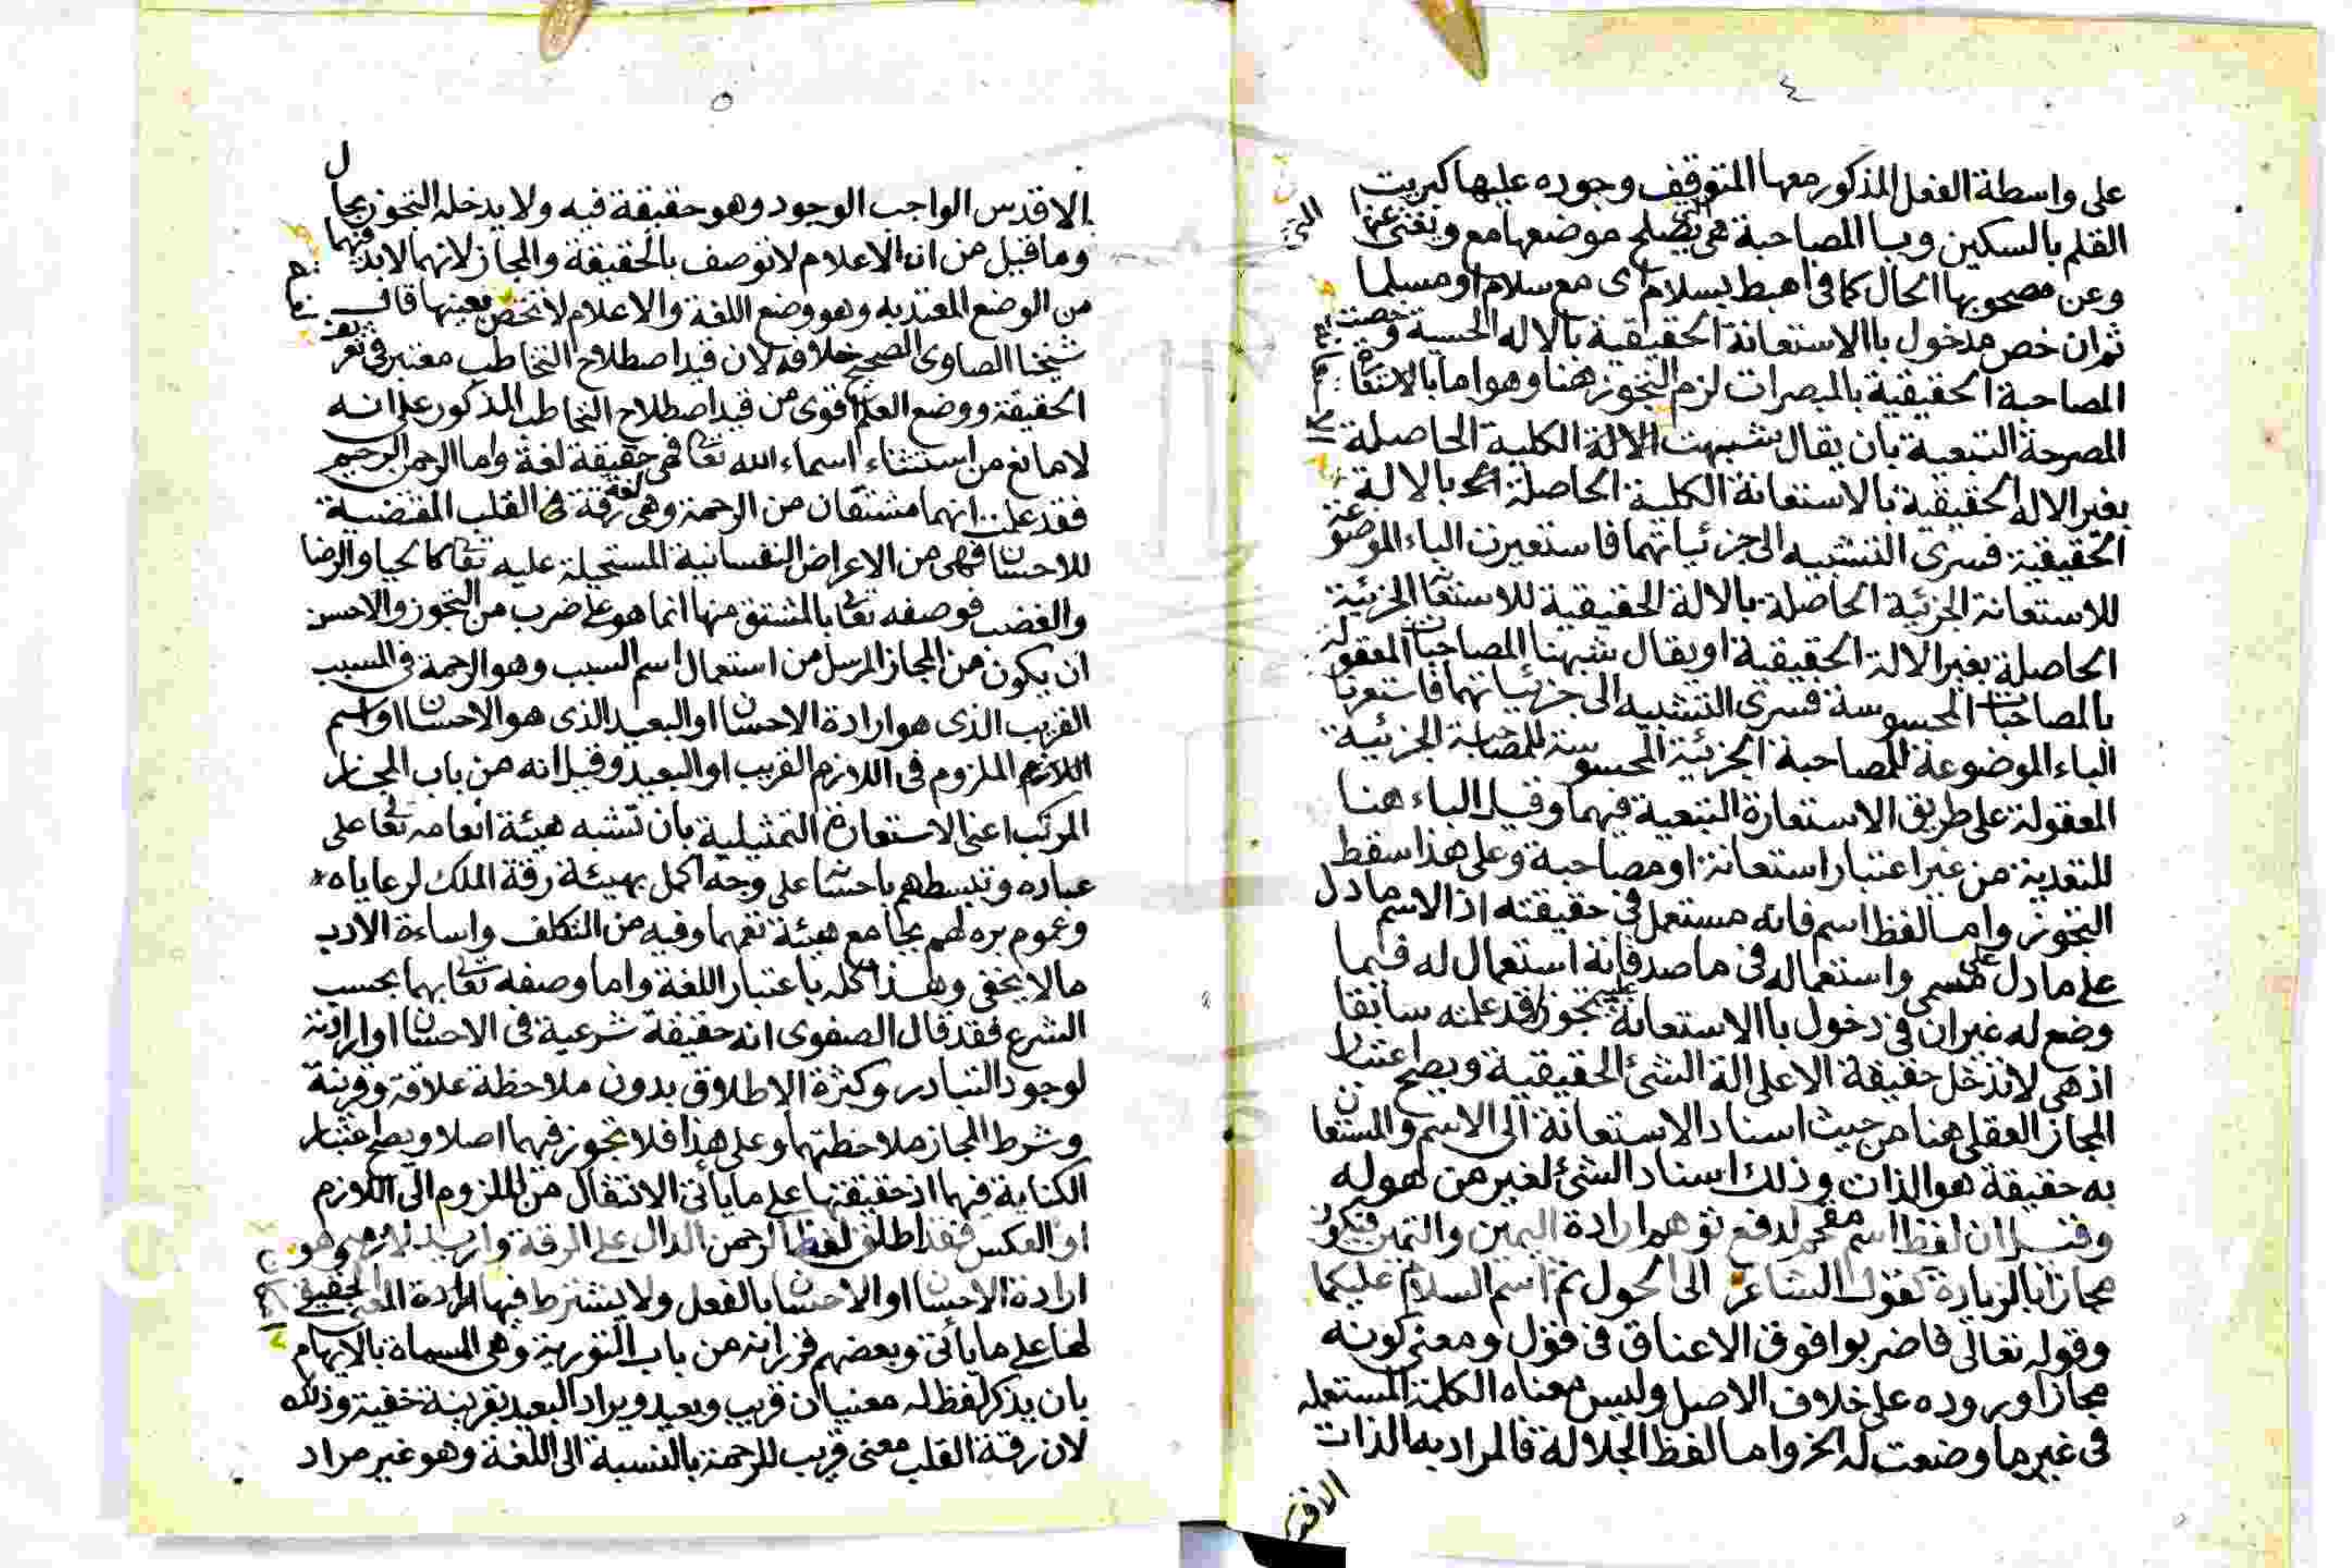 ٤
على واسطة الفعل المذكور معها المتوقف وجوده عليها كبريت
القلم بالسكين وببا المصاحبة هي التي يصلح موضعها مع ويغنى عنها
وعن مصحوبها الحال كما في اهبط بسلام اى مع سلام او مسلما
ثم ان خص مدخول باالاستعانة الحقيقية بالاله الحسية وخصت
المصاحبة الحقيقية بالمبصرات لزم التجوز هنا وهو اما بالاستعا
المصرحة التبعية بان يقال شبهت الالة الكلية الحاصلة
بغير الاله الحقيقية بالاستعانة الكلية الحاصلة بالالة
الحقيقية فسرى التشبيه الى جزئياتهما فاستعيرت الباء الموضوعة
للاستعانة الجزئية الحاصلة بالالة الحقيقية للاستعا الجزئية
الحاصلة بغير الالة الحقيقية او يقال شبهنا المصاحبات المعقولة
بالمصاحبات المحسوسة فسرى التشبيه الى جزئياتهما فاستعرنا
الباء الموضوعة للمصاحبة الجزئية المحسوسة للمصاحبة الجزئية
المعقولة على طريق الاستعارة التبعية فيهما وقيل الباء هنا
للتعدية من غير اعتبار استعانة او مصاحبة وعلى هذا سقط
التجوز وامـا لفظ اسم فانه مستعمل في حقيقته اذ الاسم ما دل
على ما دل على مسمى واستعماله في ما صدقاته استعمال له فيما
وضع له غير ان في دخول باالاستعانة عليه تجوزا قد علمته سابقا
اذ هي لا تدخل حقيقة الا على الة الشئ الحقيقية ويصح اعتبار
المجاز العقلى هنا من حيث اسناد الاستعانة الى الاسم والمستعان
به حقيقة هو الذات وذلك اسناد الشئ لغير من هو له
وقيل ان لفظ اسم مقحم لدفع توهم ارادة اليمين والتيمن فيكون
مجازا بالزيادة كقول الشاعر الى الحول ثم اسم السلام عليكما
وقوله تعالى فاضربوا فوق الاعناق في قول ومعنى كونه
مجازا وروده على خلاف الاصل وليس معناه الكلمة المستعمله
في غير ما وضعت له الخ وامـا لفظ الجلالة فالمراد به الذات
الاقدس
٥
الاقدس الواجب الوجود وهو حقيقة فيه ولا يدخله التجوز بحال
وما قيل من ان الاعلام لا توصف بالحقيقة والمجاز لانهما لا بد فيهما
من الوضع المعتد به وهو وضع اللغة والاعلام لا تختص بعينها قال
شيخنا الصاوى الصحيح خلافه لان قيد اصطلاح التخاطب معتبر في تعريف
الحقيقة ووضع العلم اقوى من قيد اصطلاح التخاطب المذكور على انه
لا مانع من استثناء اسماء الله تعالى فهي حقيقة لغة واما الرحمن الرحيم
فقد علمت انهما مشتقان من الرحمة وهي لغة رقة في القلب المقتضية
للاحسان فهي من الاعراض النفسانية المستحيلة عليه تعالى كالحيا والرضا
والغضب فوصفه تعالى بالمشتق منها انما هو على ضرب من التجوز والاحسن
ان يكون من المجاز المرسل من استعمال اسم السبب وهو الرحمة في المسبب
القريب الذى هو ارادة الاحسان او البعيد الذى هو الاحسان او اسم
الملزوم في اللازم القريب او البعيد وقيل انه من باب المجاز
المركب اعنى الاستعارة التمثيلية بان تشبه هيئة انعامه تعالى على
عباده وتبسطهم باحسانه على وجه اكمل بهيئة رقة الملك لرعاياه
وعموم بره لهم بجامع هيئة تعمهما وفيه من التكلف واساءة الادب
ما لا يخفى وهـذا كله باعتبار اللغة واما وصفه تعالى بهما بحسب
الشرع فقد قال الصفوى انه حقيقة شرعية في الاحسان او ارادته
لوجود التبادر وكثرة الاطلاق بدون ملاحظة علاقة وقرينة
وشرط المجاز ملاحظتهما وعلى هذا فلا تجوز فيهما اصلا ويصح اعتبار
الكناية فيهما اذ حقيقتها على ما يأتى الانتقال من الملزوم الى اللازم
او العكس فقد اطلق لفظ الرحمن الدال على الرقة واريد لازمه وهو
ارادة الاحسان او الاحسان بالفعل ولا يشترط فيها ارادة المعنى الحقيقي
لها على ما يأتى وبعضهم قرر انه من باب التورية وهي المسماة بالايهام
بان يذكر لفظ له معنيان قريب وبعيد ويراد البعيد بقرينة خفية وذلك
لان رقة القلب معنى قريب للرحمة بالنسبة الى اللغة وهو غير مراد